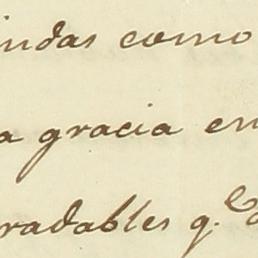 indas como
a gracia en
radables q.e